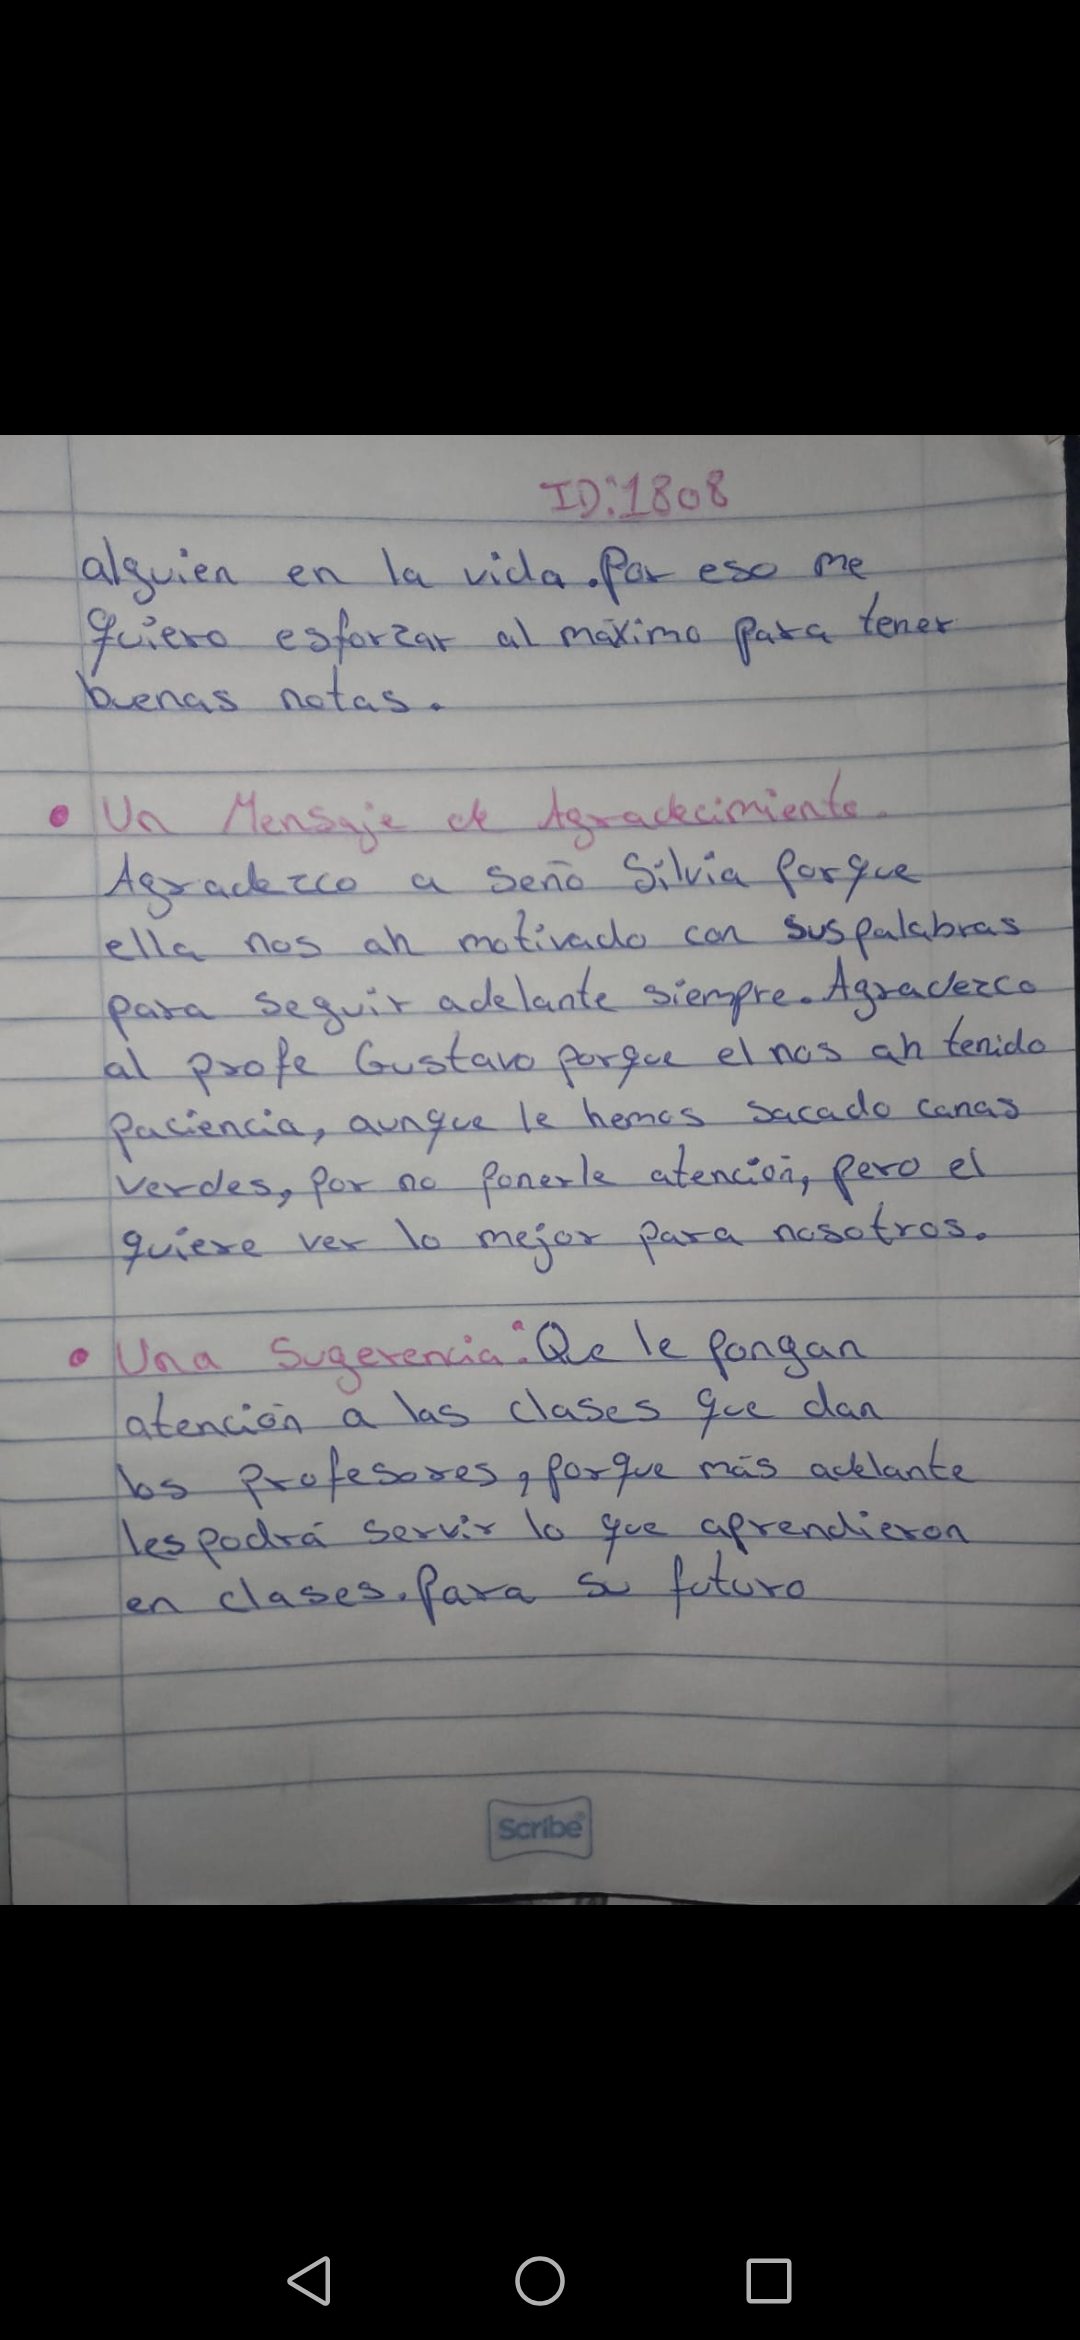 ID:1808
alguien en la vida. Por eso me
quiero esforzar al máximo para tener
buenas notas.
• Un Mensaje de Agradecimiento.
Agradezco a seño Silvia porque
ella nos ah motivado con sus palabras
para seguir adelante siempre. Agradezco
al profe Gustavo porque el nos ah tenido
paciencia, aunque le hemos sacado canas
verdes, por no ponerle atención, pero el
quiere ver lo mejor para nosotros.
• Una Sugerencia: Que le pongan
atención a las clases que dan
los profesores, porque más adelante
les podrá servir lo que aprendieron
en clases. Para su futuro
Scribe